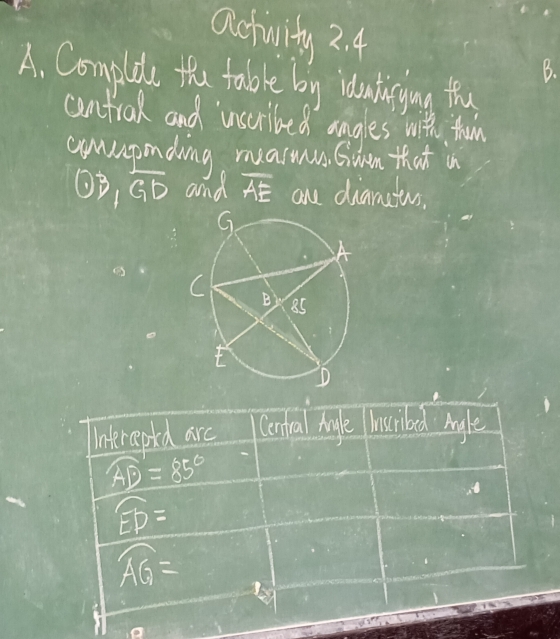 Activity 2.4
A. Complete the table by identifying the
central and inscribed angles with their
corresponding measures. Given that in
⊙B, G͞D and A͞E are diameters.
B.
G
A
C
B 85
E
D
Intercepted arc Central Angle Inscribed Angle
AD = 85°
ED =
AG =